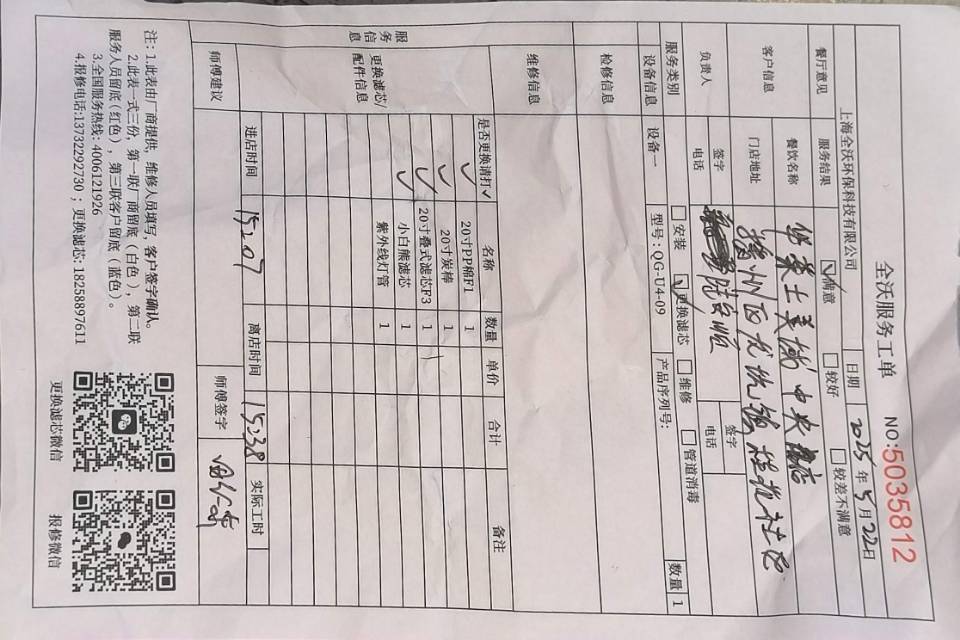 全沃服务工单
NO:5035812
上海全沃环保科技有限公司
日期 2025年5月22日
餐厅意见 服务结果 ☑满意 □较好 □较差不满意
客户信息 餐饮名称 华莱士 中央店
门店地址
负责人 签字 签字
电话 电话
服务类别 □安装 ☑更换滤芯 □维修 □管道消毒
设备信息 设备一 型号:QG-U4-09 产品序列号: 数量 1
检修信息
维修信息
服务信息
更换滤芯/配件信息
是否更换请打✓ 名称 数量 单价 合计 备注
✓ 20寸PP棉F1 1
✓ 20寸炭棒 1
✓ 20寸叠式滤芯F3 1
✓ 小白熊滤芯 1
紫外线灯管 1
进店时间 15:07 离店时间 15:38 实际工时
师傅建议 师傅签字
注:1.此表由厂商提供,维修人员填写,客户签字确认。
2.此表一式三份,第一联厂商留底(白色),第二联
服务人员留底(红色),第三联客户留底(蓝色)。
3.全国服务热线:4006121926
4.报修电话:13732292730;更换滤芯:18258897611
更换滤芯微信
报修微信